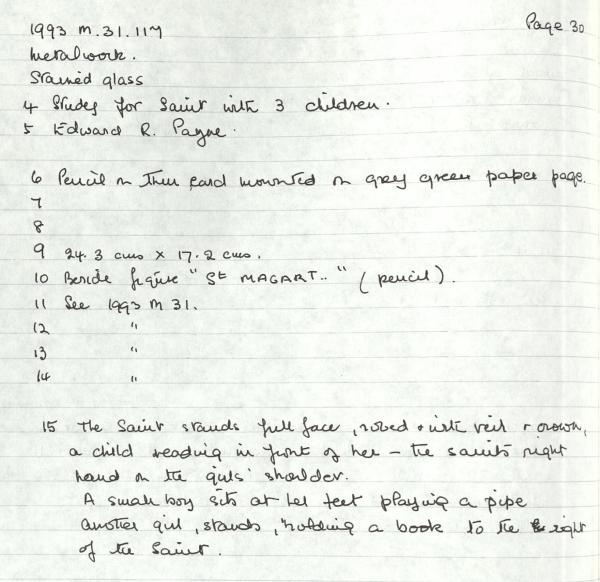 1993 M.31.117 Page 30
Metalwork.
Stained glass
4 Study for Saint with 3 children.
5 Edward R. Payne.
6 Pencil on thin card mounted on grey green paper page.
7
8
9 24.3 cms x 17.2 cms.
10 Beside figure "St MAGART.." (pencil).
11 See 1993 M 31.
12 "
13 "
14 "
15 The Saint stands full face, robed + with veil + crown,
a child reading in front of her – the saints right
hand on the girls' shoulder.
A small boy sits at her feet playing a pipe
another girl, stands, holding a book to the right
of the Saint.